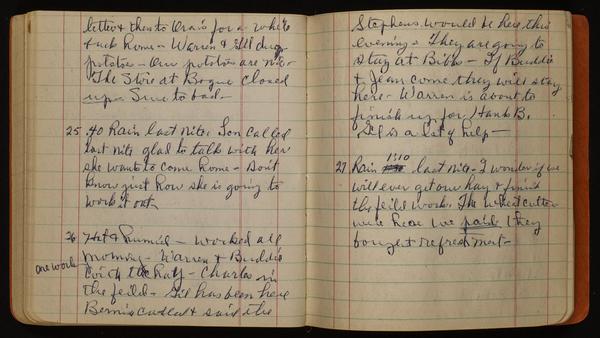 letter & then to Orais for a while
& uck home - Warren & Gil dug
potatoes - Our potatoes are nice -
The Store at Bogue closed
up - Sure to bad -
25 .40 Rain last nite. Son called
last nite glad to talk with her
she wants to come home - Don't
know just how she is going to
work it out -
26 Hot & humid - worked all
one work morning - Warren & Buddie
with the hay - Charles in
the feild - Gil has been here
Bernis called & said the
Stephens would be here this
evening - They are going to
stay at Bibbs - If Buddie
& Jean come they will stay
here - Warren is about to
finish up for Hank B.
Gil is a lot of help -
27 Rain 1.10 last nite - I wonder if we
will ever get our hay & finish
the feild work. The wheat cutters
were here we paid they
bought refreshment -